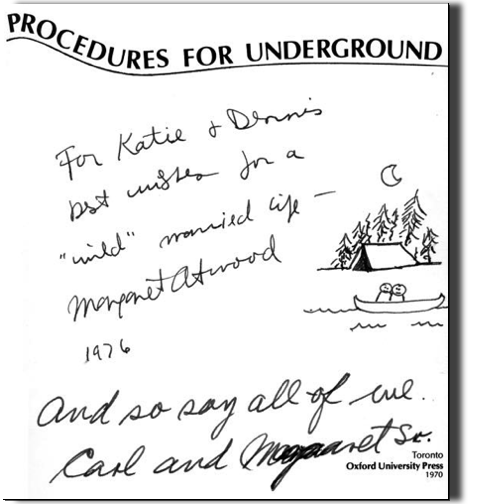 PROCEDURES FOR UNDERGROUND
For Katie & Dennis
best wishes for a
"wild" married life –
Margaret Atwood
1976
And so say all of we.
Carl and Margaret Sr.
Toronto
Oxford University Press
1970